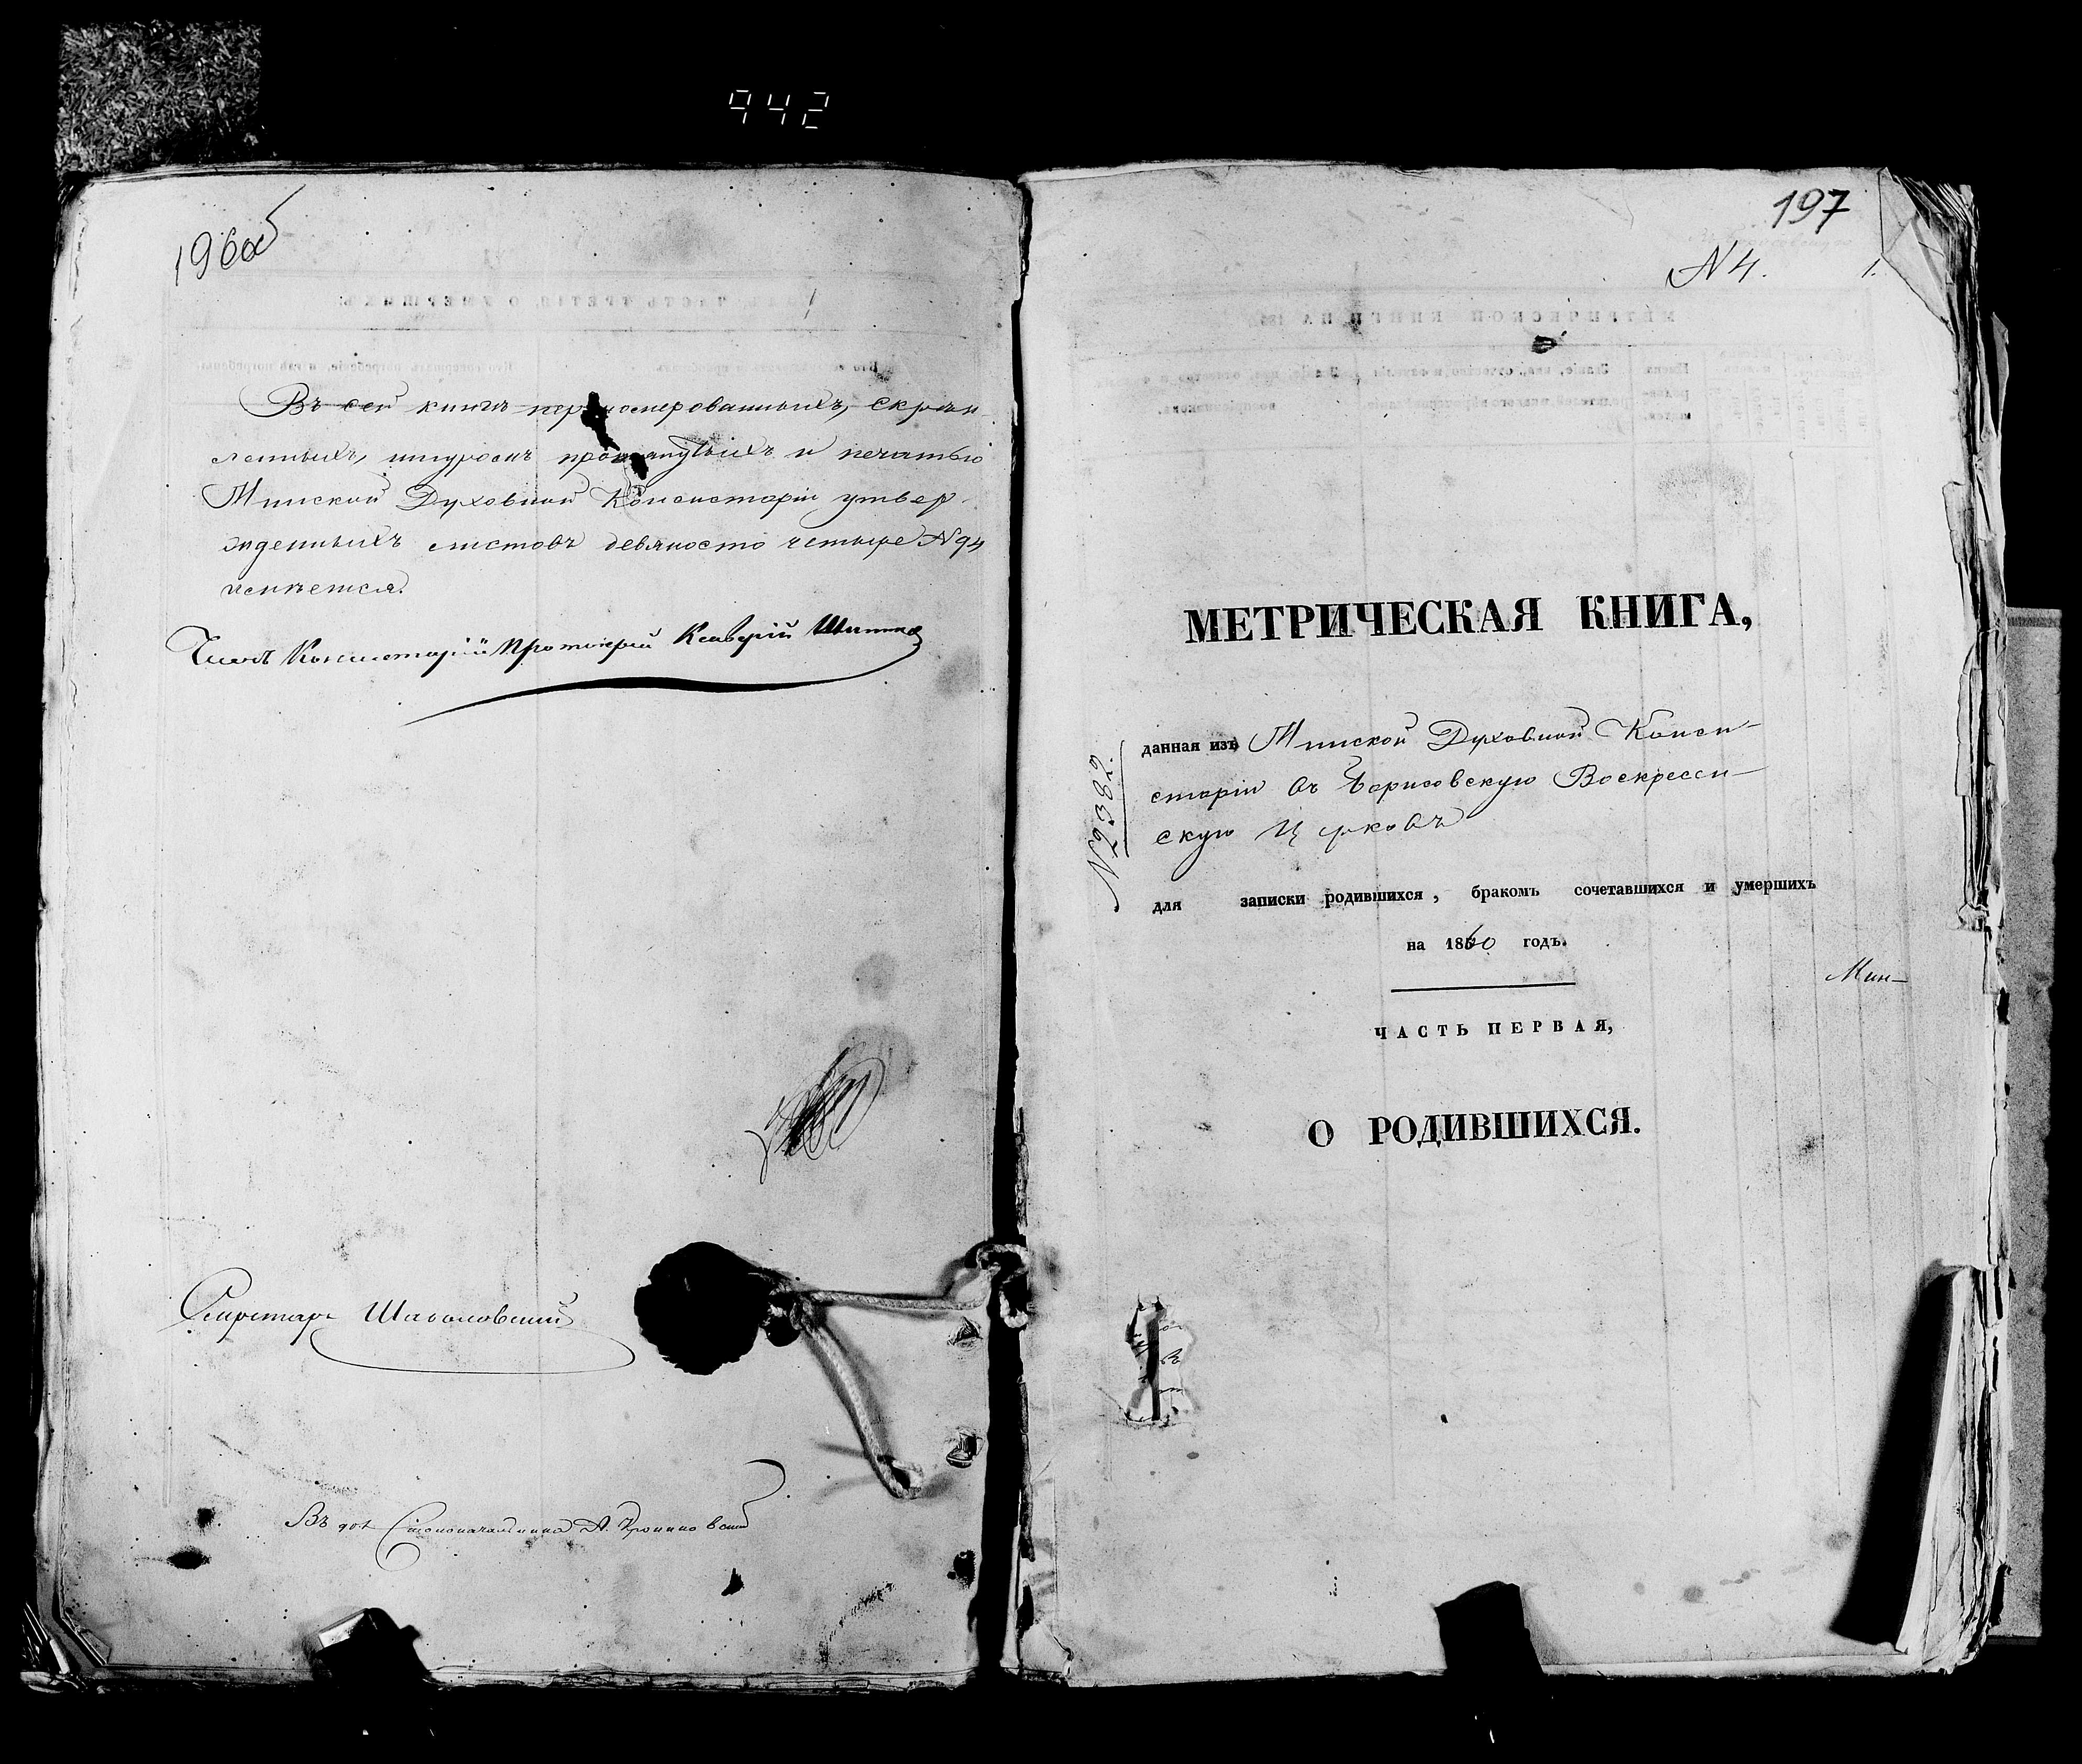 942
196об
Въ сей книгѣ перенумерованныхъ, скрѣп-
ленныхъ, шнуромъ протянутыхъ и печатью
Минской Духовной Консисторіи утвер-
жденныхъ листовъ девяносто четыре N 94
имѣется.
Членъ Консисторіи Протоіерей Ксаверій
Секретарь
Въ дол. Столоначальника А.
197
N 4.
1.
МЕТРИЧЕСКАЯ КНИГА,
N 2382.
данная изъ Минской Духовной Конси-
сторіи въ Борисовскую Воскресен-
скую Церковь
для записки родившихся, бракомъ сочетавшихся и умершихъ
на 1860 годъ.
Мин-
ЧАСТЬ ПЕРВАЯ,
О РОДИВШИХСЯ.